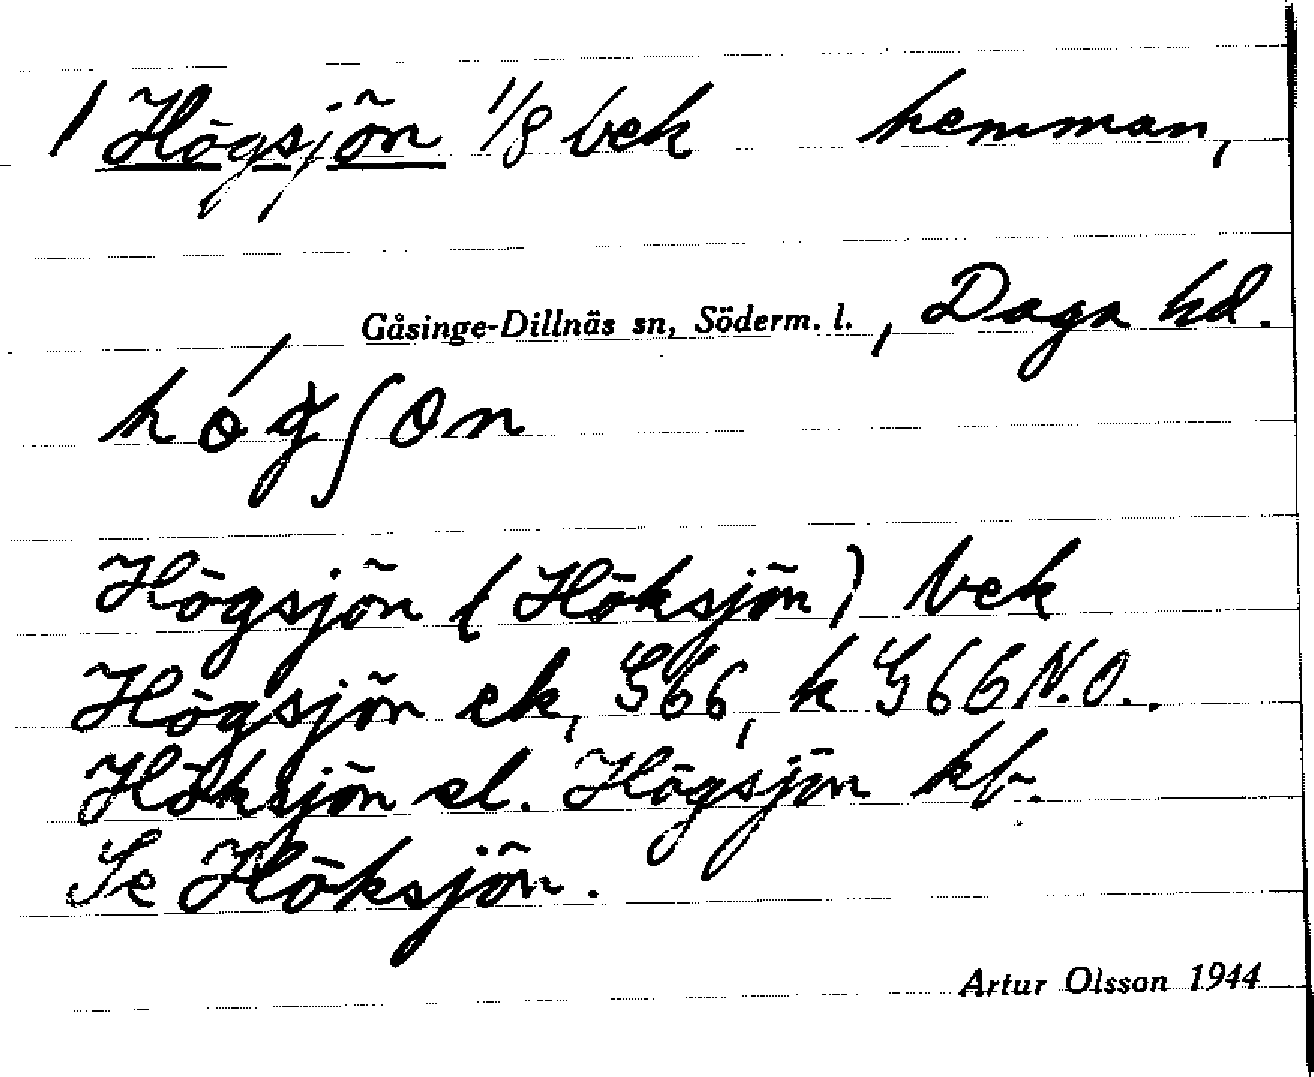 1 Högsjön 1/8 bek hemman,
Gåsinge-Dillnäs sn, Söderm. l., Daga hd.
Högsjön (Höksjön) bek
Högsjön ek, G66, k G66 N.O..
Höksjön el. Högsjön kb.
Se Höksjön.
Artur Olsson 1944